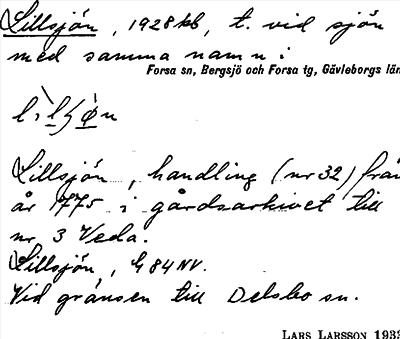 Lillsjön, 1928 kb, t. vid sjön
med samma namn i
Forsa sn, Bergsjö och Forsa tg, Gävleborgs län
Lillsjön, handling (nr 32) från
år 1775 i gårdsarkivet till
nr 3 Veda.
Lillsjön, G 84 NV.
Vid gränsen till Delsbo sn.
LARS LARSSON 1933